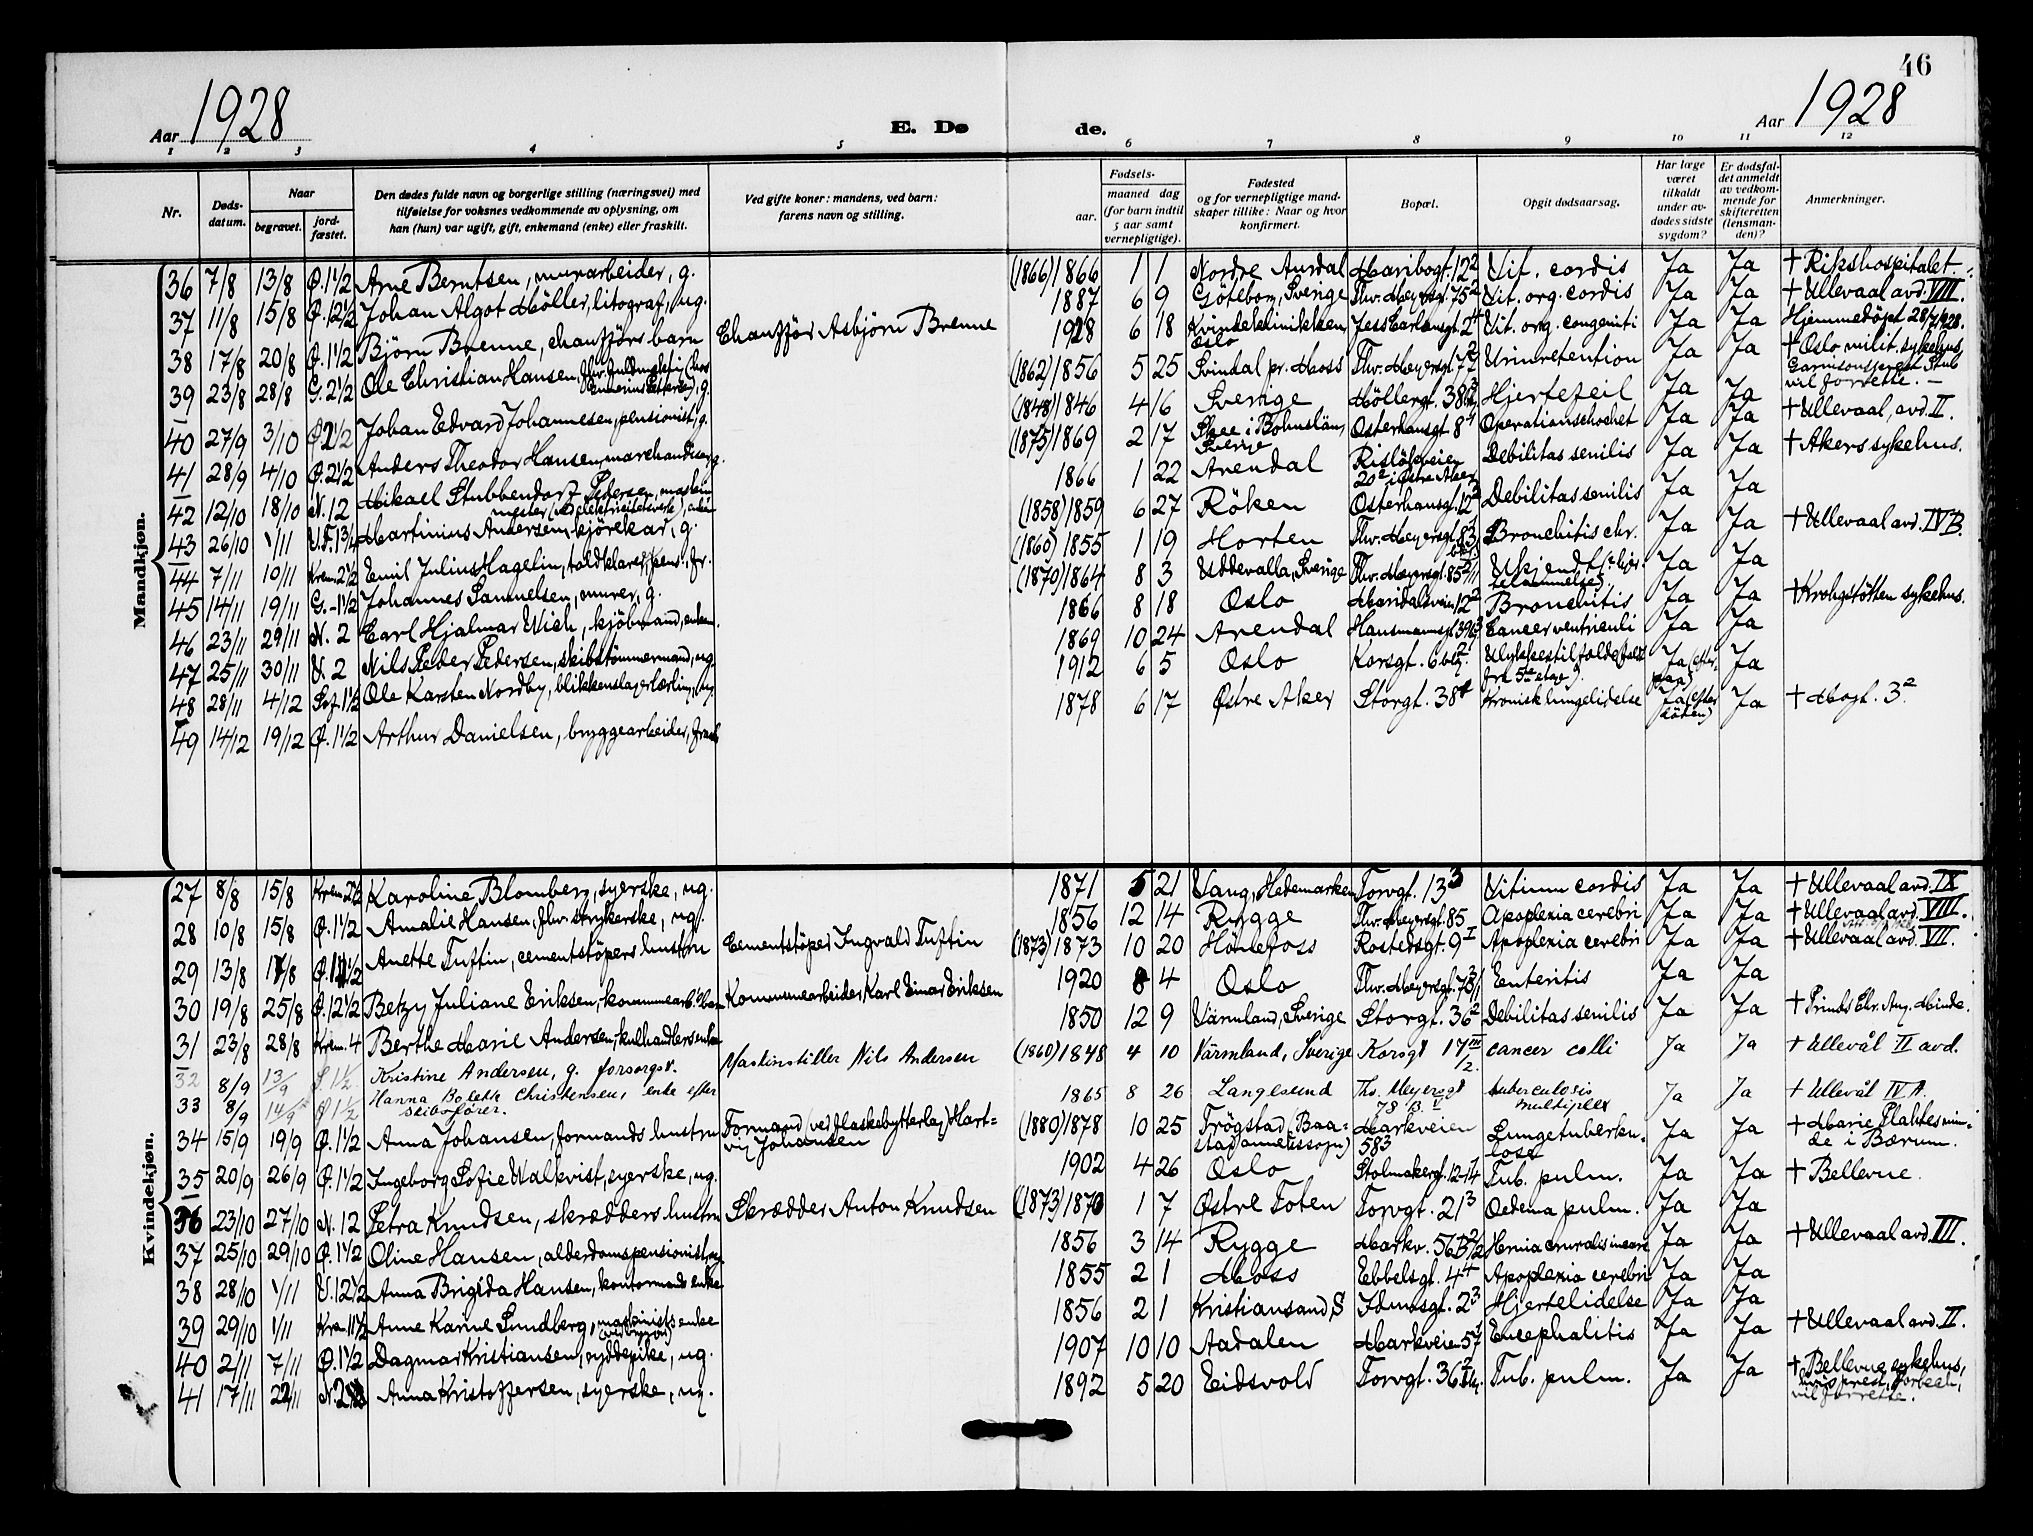 46
Aar 1928
E. Dø de.
Aar 1928
1 2 3 4 5 6 7 8 9 10 11 12
Nr.
Døds-datum.
Naar
begravet.
jord-fæstet.
Den dødes fulde navn og borgerlige stilling (næringsvei) med
tilføielse for voksnes vedkommende av oplysning, om
han (hun) var ugift, gift, enkemand (enke) eller fraskilt.
Ved gifte koner: mandens, ved barn:
farens navn og stilling.
Fødsels-
aar.
maaned dag
(for barn indtil
5 aar samt
vernepligtige).
Fødested
og for vernepligtige mand-
skaper tillike: Naar og hvor
konfirmert.
Bopæl.
Opgit dødsaarsag.
Har læge
været
tilkaldt
under av-
dødes sidste
sygdom?
Er dødsfal-
det anmeldt
av vedkom-
mende for
skifteretten
(lensman-
den)?
Anmerkninger.
Mandkjøn.
36 7/8 13/8 Ø. 1 1/2 Arne Berntsen, murarbeider, g. (1866) 1866 1 1 Nordre Aurdal Maribogt. 12² Vit. cordis Ja Ja + Rikshospitalet.
37 11/8 15/8 Ø. 12 1/2 Johan Algot Möller, litograf, ug. 1887 6 9 Göteborg, Sverige Thv. Meyersgt. 75² Vit. org. cordis Ja Ja + Ullevaal avd. VIII.
38 17/8 20/8 Ø. 1 1/2 Björn Brenne, chaufførs barn Chauffør Asbjørn Brenne 1928 6 18 Kvindeklinikken Oslo Jess Carlsensgt. 2⁴ Vit. org. congeniti Ja Ja Hjemmedöpt 28/7 1928.
39 23/8 28/8 G. 2 1/2 Ole Christian Hansen, g. (1862) 1856 5 25 Svindal pr. Moss Thv. Meyersgt. 77² Urinretention Ja Ja + Oslo milit. sykehus, Garnisonsprest Stub vil forrette. —
40 27/9 3/10 Johan Edvard Johannesen, pensionist, g. (1848) 1846 4 6 Sverige Möllergt. 38 Hjertefeil Ja Ja + Ullevaal, avd. II.
41 28/9 4/10 Ø. 2 1/2 Anders Theodor Hansen, g. (1875) 1869 2 17 Skee i Bohuslän, Sverige Osterhausgt. 8 Operationschocket Ja Ja + Akers sykehus.
42 12/10 18/10 N. 12 Mikael Stubbendorf Pedersen, 1866 1 22 Arendal Risløkveien 20 i Østre Aker Debilitas senilis Ja Ja
43 26/10 1/11 V.F. 1 3/4 Martinius Andersen, kjörekar, g. (1858) 1859 6 27 Röken Osterhausgt. 12³ Debilitas senilis Ja Ja
44 7/11 10/11 Krem. 2 1/2 Emil Julius Hagelin, toldklarer, (1860) 1855 1 19 Horten Thv. Meyersgt. 83 Bronchitis chr. Ja Ja + Ullevaal avd. IV B.
45 14/11 19/11 G. 1 1/2 Johannes Samuelsen, murer, g. (1870) 1864 8 3 Uddevalla, Sverige Thv. Meyersgt. 85 Ukjendt Ja Ja
46 23/11 29/11 N. 2 Carl Hjalmar Wich, kjöbmand, 1866 8 18 Oslo Maridalsveien 12² Bronchitis Ja Ja + Krohgstötten sykehus.
47 25/11 30/11 V. 2 Nils Peder Pedersen, skibstömmermand, ug. 1869 10 24 Arendal Hausmannsgt. 39 Cancer ventriculi Ja Ja
48 28/11 4/12 Sof. 1 1/2 Ole Karsten Nordby, blikkenslagerlærling, ug. 1912 6 5 Oslo Korsgt. 6 Ulykkestilfælde (falt fra 5te etage). Ja Ja
49 14/12 19/12 Ø. 1 1/2 Arthur Danielsen, bryggearbeider, frask. 1878 6 17 Østre Aker Storgt. 38 Kronisk lungelidelse Ja (efter döden) Ja + Mogt. 3².
Kvindekjøn.
27 8/8 15/8 Krem. 2 1/2 Karoline Blomberg, syerske, ug. 1871 5 21 Vang, Hedemarken Torvgt. 13³ Vitium cordis Ja Ja + Ullevaal avd. IX
28 10/8 15/8 Ø. 1 1/2 Amalie Hansen, fhv. strykerske, ug. 1856 12 14 Rygge Thv. Meyersgt. 85 Apoplexia cerebri Ja Ja + Ullevaal avd. VIII.
29 13/8 17/8 Ø. 1 1/2 Anette Tuftin, cementstöpers hustru Cementstöper Ingvald Tuftin (1873) 1873 10 20 Hönefoss Rostedsgt. 9 I Apoplexia cerebri Ja Ja + Ullevaal avd. VII.
30 19/8 25/8 Ø. 12 1/2 Betzy Juliane Eriksen, kommunearb.s barn Kommunearbeider Karl Einar Eriksen 1920 8 4 Oslo Thv. Meyersgt. 78 Enteritis Ja Ja
31 23/8 28/8 Krem. 4 Berthe Marie Andersen, kulhandlersenke 1850 12 9 Värmland, Sverige Storgt. 36² Debilitas senilis Ja Ja + Prinds Chr. Aug. Minde.
32 8/9 13/9 Ø 1 1/2 Kristine Andersen, g. forsorgsv. Maskinstiller Nils Andersen (1860) 1848 4 10 Värmland, Sverige Korsgt 17 cancer colli Ja Ja + Ullevål II avd.
33 8/9 14/9 Ø 1 1/2 Hanna Bolette Christensen, enke efter skibsfører. 1865 8 26 Langesund Ths. Meyersgt 78 B. V tuberculosis multiplex Ja Ja + Ullevål IV A.
34 15/9 19/9 Ø. 1 1/2 Anna Johansen, formands hustru Formand (ved flaskebytterlag) Hart-vig Johansen (1880) 1878 10 25 Trögstad (Baa-stad annekssogn) Markveien 58³ Lungetuberku-lose Ja Ja + Marie Plahtes min-de i Bærum.
35 20/9 26/9 Ø. 1 1/2 Ingeborg Sofie Walkvist, syerske, ug. 1902 4 26 Oslo Stolmakergt. 12-14 Tub. pulm. Ja Ja + Bellevue.
36 23/10 27/10 N. 12 Petra Knudsen, skrædders hustru Skrædder Anton Knudsen (1873) 1870 1 7 Østre Toten Torvgt. 21³ Oedema pulm. Ja Ja
37 25/10 29/10 Ø. 1 1/2 Oline Hansen, alderdomspensionist, ug. 1856 3 14 Rygge Markv. 56 B Hernia cruralis incarc. Ja Ja + Ullevaal avd. III.
38 28/10 1/11 V. 12 1/2 Anna Brigida Hansen, kontormands enke 1855 2 1 Moss Ebbelsgt. 4⁴ Apoplexia cerebri Ja Ja
39 29/10 1/11 Krem. 11 1/2 Anne Karine Sundberg, maskinists enke 1856 2 1 Kristiansand S Idunsgt. 2³ Hjertelidelse Ja Ja
40 2/11 7/11 Ø. 1 1/2 Dagmar Kristiansen, ryddepike, ug. 1907 10 10 Aadalen Markveien 57 Encephalitis Ja Ja + Ullevaal avd. II.
41 17/11 22/11 N. 2 Anna Kristoffersen, syerske, ug. 1892 5 20 Eidsvold Torvgt. 36 Tub. pulm. Ja Ja + Bellevue sykehus, hvis prest, vil forrette.